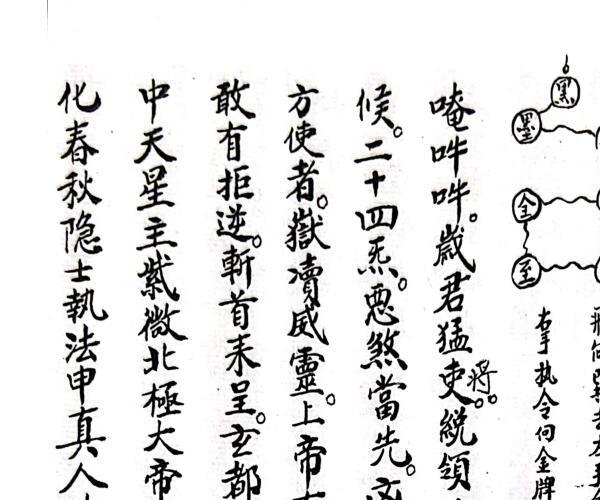 黑
墨
金
至
右手执令向金牌
唵吽吽。歲君猛吏將。統領
候。二十四炁。惡煞當先。
方使者。嶽瀆威靈。上帝
敢有拒逆。斬首来呈。玄都
中天星主紫微北極大帝
化春秋隐士執法申真人